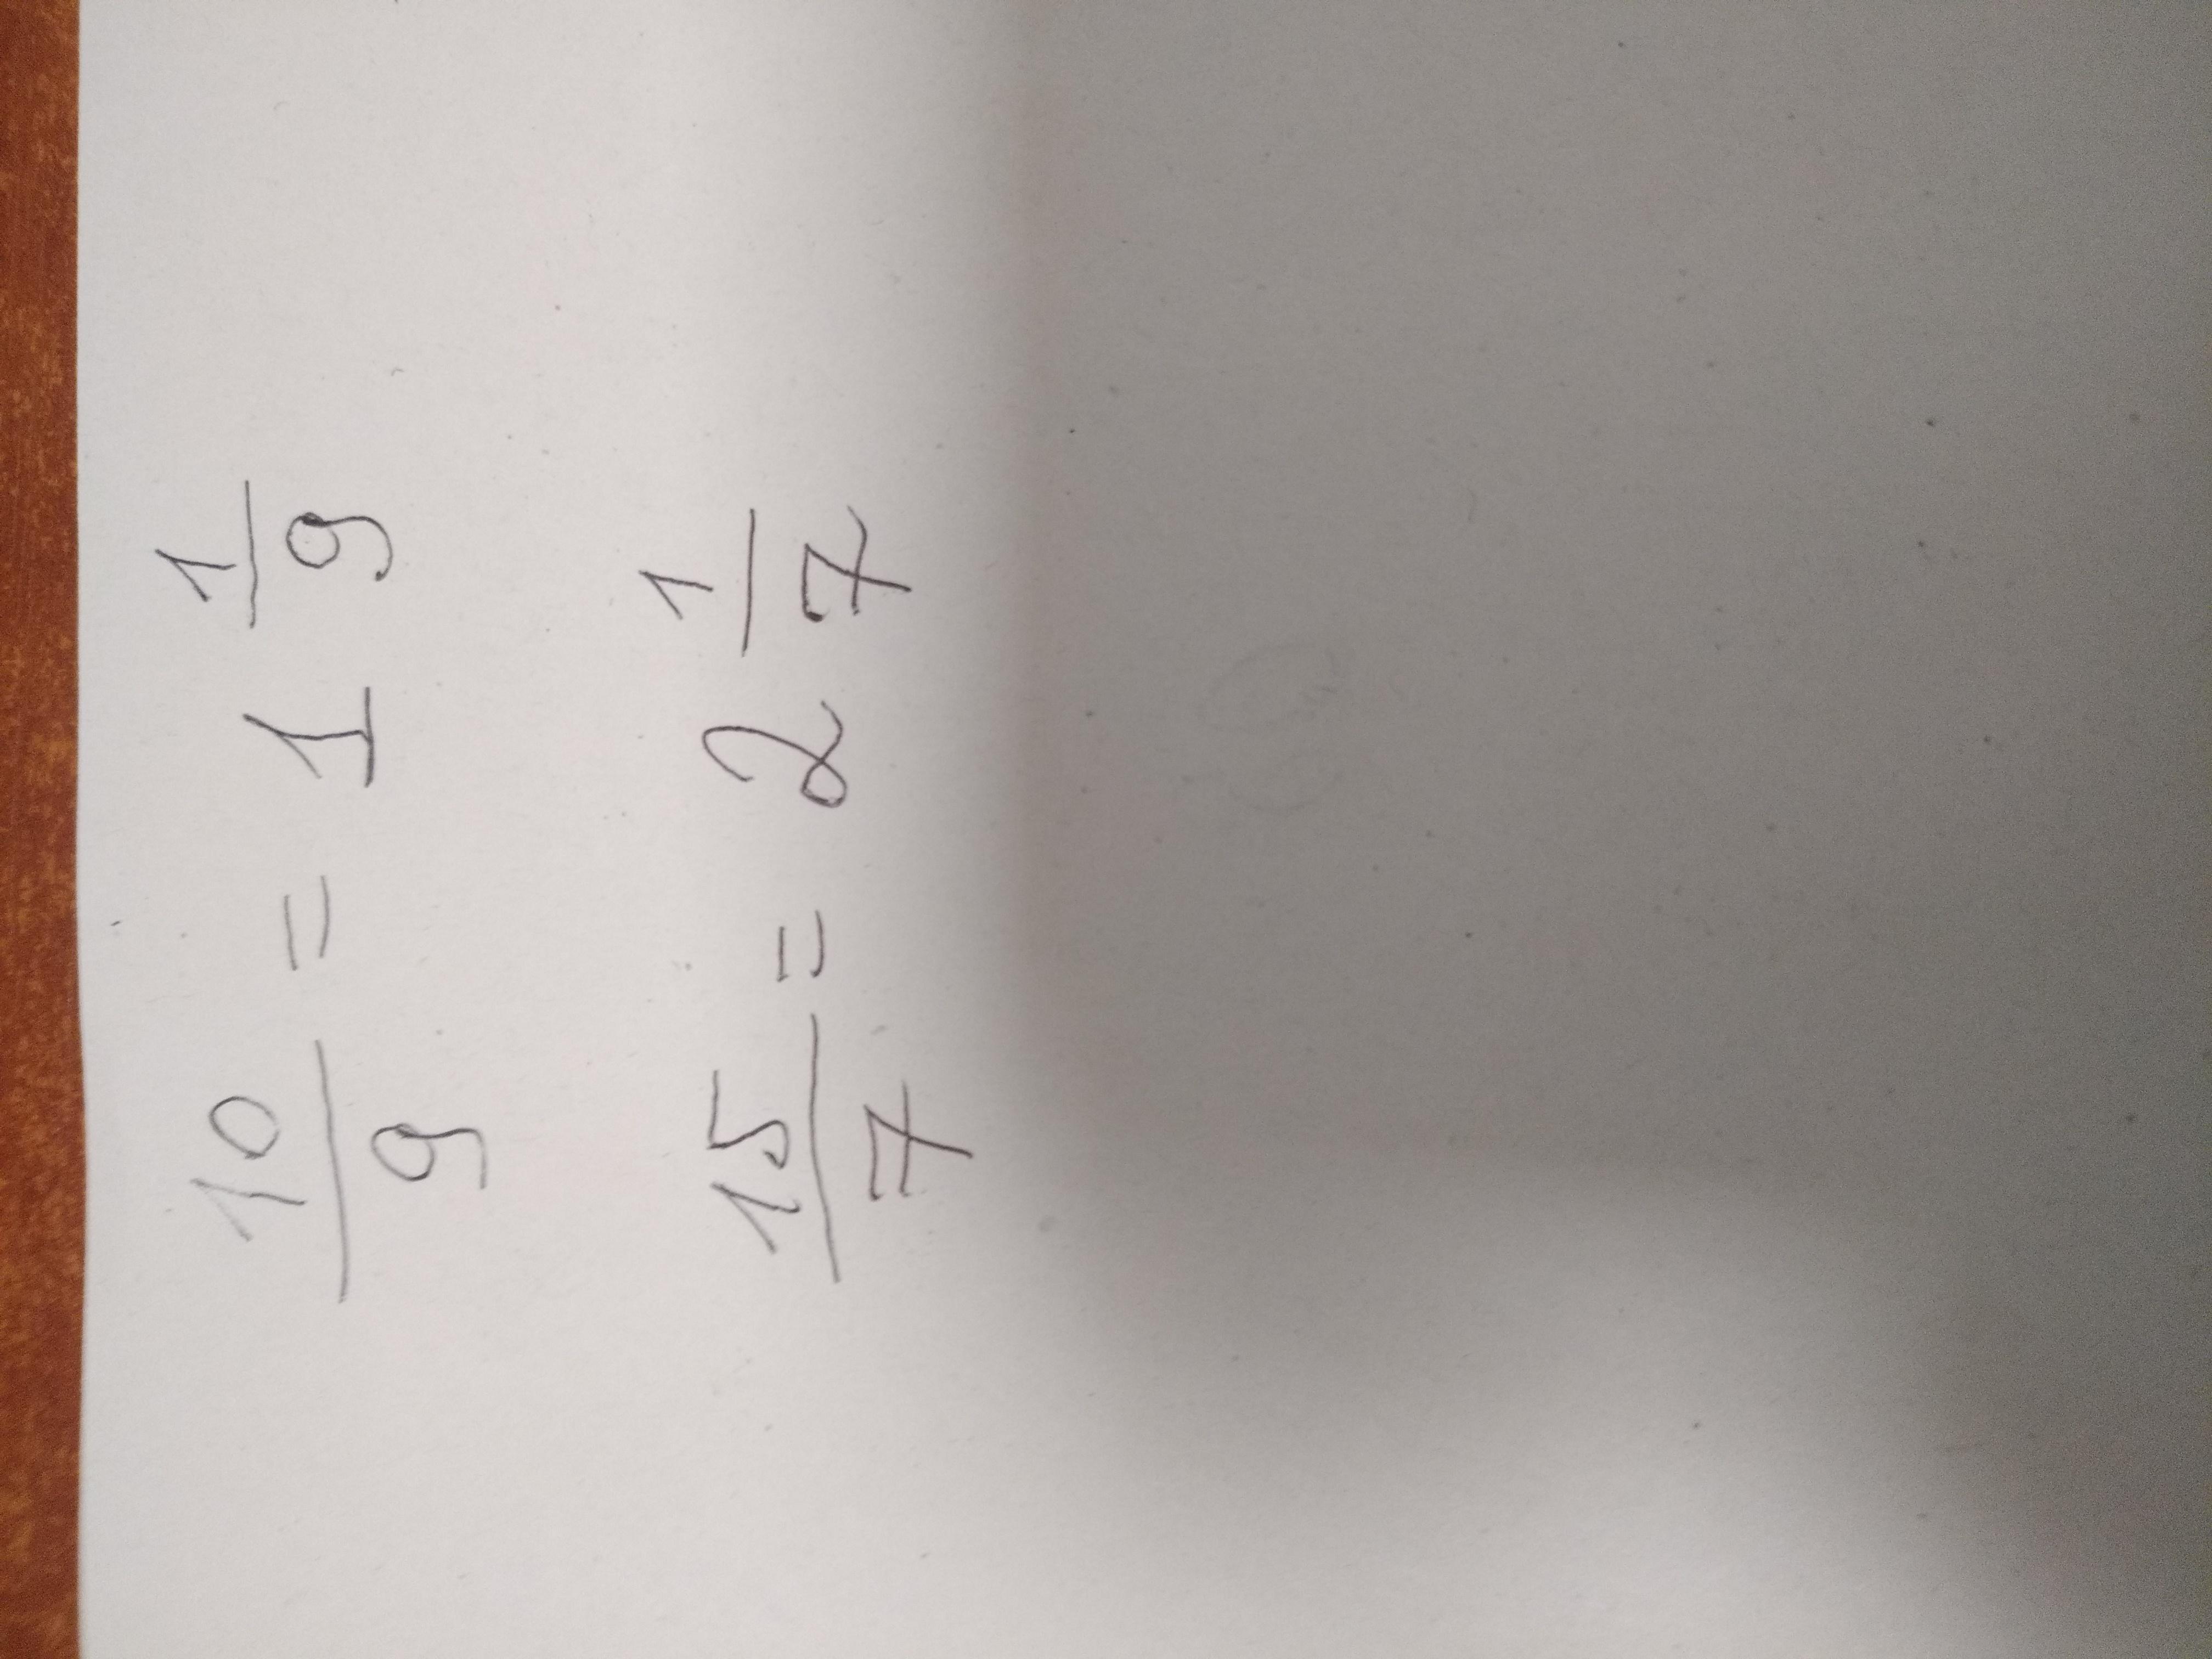 10/9 = 1 1/9
15/7 = 2 1/7